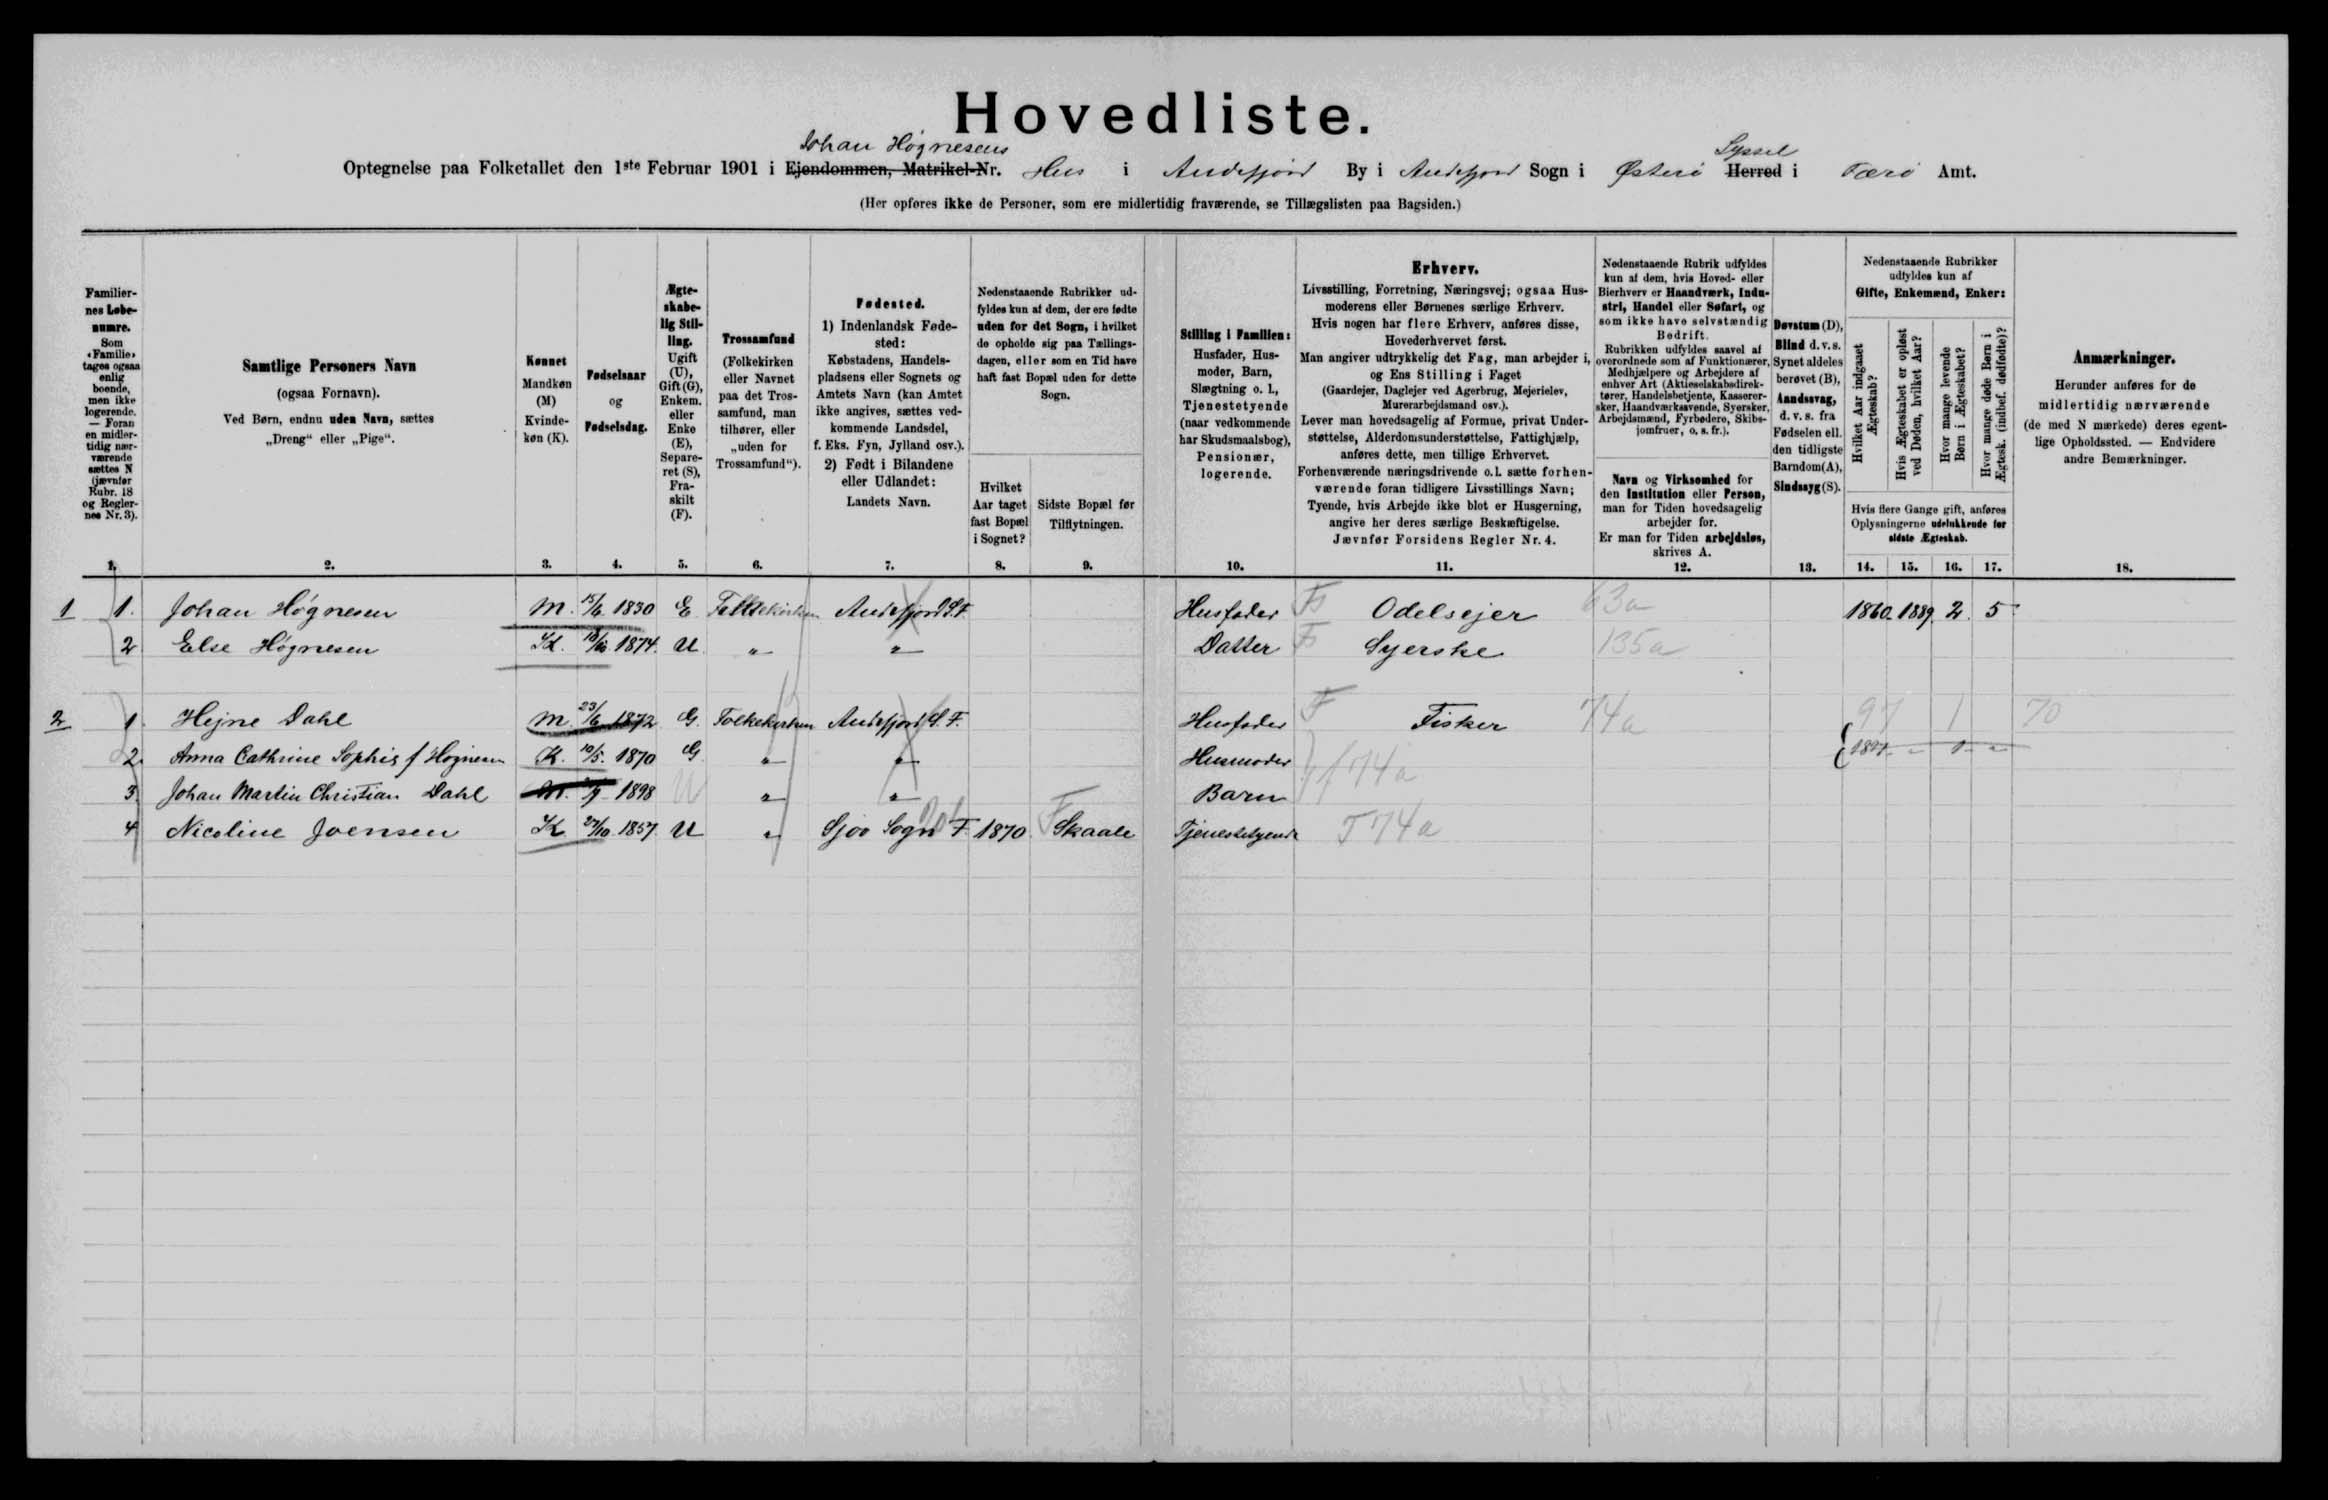 Hovedliste.
Johan Høgnesens Syssel
Optegnelse paa Folketallet den 1ste Februar 1901 i Ejendommen, Matrikel-Nr. Hus i Andefjord By i Andefjord Sogn i Østerø Herred i Færø Amt.
(Her opføres ikke de Personer, som ere midlertidig fraværende, se Tillægslisten paa Bagsiden.)
Familier-
nes Løbe-
numre.
Som
«Familie»
tages ogsaa
enlig
boende,
men ikke
logerende.
— Foran
en midler-
tidig nær-
værende
sættes N
(jævnfør
Rubr. 18
og Regler-
nes Nr. 3).
1.
Samtlige Personers Navn
(ogsaa Fornavn).
Ved Børn, endnu uden Navn, sættes
„Dreng“ eller „Pige“.
2.
Kønnet
Mandkøn
(M)
Kvinde-
køn (K).
3.
Fødselsaar
og
Fødselsdag.
4.
Ægte-
skabe-
lig Stil-
ling.
Ugift
(U),
Gift (G),
Enkem.
eller
Enke
(E),
Separe-
ret (S),
Fra-
skilt
(F).
5.
Trossamfund
(Folkekirken
eller Navnet
paa det Tros-
samfund, man
tilhører, eller
„uden for
Trossamfund“).
6.
Fødested.
1) Indenlandsk Føde-
sted:
Købstadens, Handels-
pladsens eller Sognets og
Amtets Navn (kan Amtet
ikke angives, sættes ved-
kommende Landsdel,
f. Eks. Fyn, Jylland osv.).
2) Født i Bilandene
eller Udlandet:
Landets Navn.
7.
Nedenstaaende Rubrikker ud-
fyldes kun af dem, der ere fødte
uden for det Sogn, i hvilket
de opholde sig paa Tællings-
dagen, eller som en Tid have
haft fast Bopæl uden for dette
Sogn.
Hvilket
Aar taget
fast Bopæl
i Sognet?
8.
Sidste Bopæl før
Tilflytningen.
9.
Stilling i Familien:
Husfader, Hus-
moder, Barn,
Slægtning o. l.,
Tjenestetyende
(naar vedkommende
har Skudsmaalsbog),
Pensionær,
logerende.
10.
Erhverv.
Livsstilling, Forretning, Næringsvej; ogsaa Hus-
moderens eller Børnenes særlige Erhverv.
Hvis nogen har flere Erhverv, anføres disse,
Hovederhvervet først.
Man angiver udtrykkelig det Fag, man arbejder i,
og Ens Stilling i Faget
(Gaardejer, Daglejer ved Agerbrug, Mejerielev,
Murerarbejdsmand osv.).
Lever man hovedsagelig af Formue, privat Under-
støttelse, Alderdomsunderstøttelse, Fattighjælp,
anføres dette, men tillige Erhvervet.
Forhenværende næringsdrivende o.l. sætte forhen-
værende foran tidligere Livsstillings Navn;
Tyende, hvis Arbejde ikke blot er Husgerning,
angive her deres særlige Beskæftigelse.
Jævnfør Forsidens Regler Nr. 4.
11.
Nedenstaaende Rubrik udfyldes
kun af dem, hvis Hoved- eller
Bierhverv er Haandværk, Indu-
stri, Handel eller Søfart, og
som ikke have selvstændig
Bedrift.
Rubrikken udfyldes saavel af
overordnede som af Funktionærer,
Medhjælpere og Arbejdere af
enhver Art (Aktieselskabsdirek-
tører, Handelsbetjente, Kasserer-
sker, Haandværkssvende, Syersker,
Arbejdsmænd, Fyrbødere, Skibs-
jomfruer, o. s. fr.).
Navn og Virksomhed for
den Institution eller Person,
man for Tiden hovedsagelig
arbejder for.
Er man for Tiden arbejdsløs,
skrives A.
12.
Døvstum (D),
Blind d. v. s.
Synet aldeles
berøvet (B),
Aandssvag,
d. v. s. fra
Fødselen ell.
den tidligste
Barndom (A),
Sindssyg (S).
13.
Nedenstaaende Rubrikker
udfyldes kun af
Gifte, Enkemænd, Enker:
Hvilket Aar indgaaet
Ægteskab?
Hvis Ægteskabet er opløst
ved Døden, hvilket Aar?
Hvor mange levende
Børn i Ægteskabet?
Hvor mange døde Børn i
Ægtesk. (indbef. dødfødte)?
Hvis flere Gange gift, anføres
Oplysningerne udelukkende for
sidste Ægteskab.
14. 15. 16. 17.
Anmærkninger.
Herunder anføres for de
midlertidig nærværende
(de med N mærkede) deres egent-
lige Opholdssted. — Endvidere
andre Bemærkninger.
18.
1 1. Johan Høgnesen M. 1830 E Folkekirken Andefjord S. F. Husfader F Odelsejer 63a 1860 1889 2 5
2 Else Høgnesen K. 1874. U " " Datter F Syerske 135a
2 1. Hejne Dahl M. 23/6 1872 G. Folkekirken Andefjord S. F. Husfader F Fisker 74a 97 1 70
2. Anna Cathrine Sophie f Høgnesen K. 10/5. 1870 G " " Husmoder f 74a 1897 " 1 "
3. Johan Martin Christian Dahl M. 1898 U " " Barn
4 Nicoline Joensen K 27/10 1857 U " Sjov Sogn F. 1870 Skaale Tjenestetyende T 74a